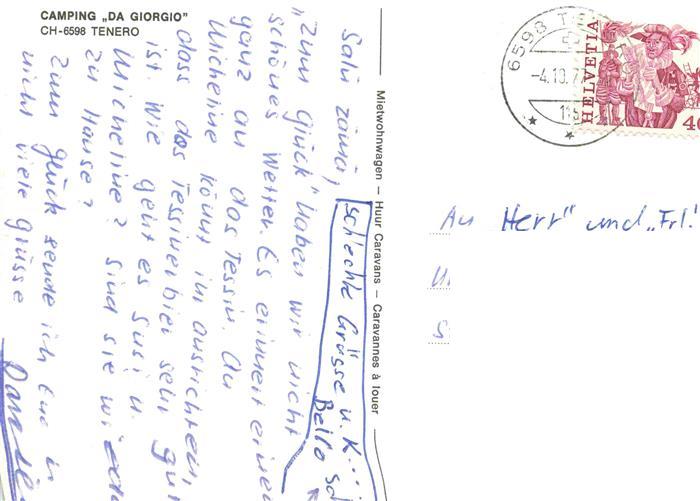 CAMPING „DA GIORGIO"
CH-6598 TENERO
Salü zäma,
"Zum Glück" haben wir nicht
schönes Wetter. Es erinnert einen
ganz an das Tessin. Au
Micheline könnt ihr ausrichten
dass das Tessinerbier sehr gut
ist. Wie geht es Susi u.
Micheline? Sind sie wieder
zu Hause?
Zum glück sende ich Eue
nicht viele grüsse
schlechte Grüsse u. K...
Bello
Mietwohnwagen – Huur Caravans – Caravannes à louer
6598 TE
-4.10.77
HELVETIA
40
An Herr" und „Frl!